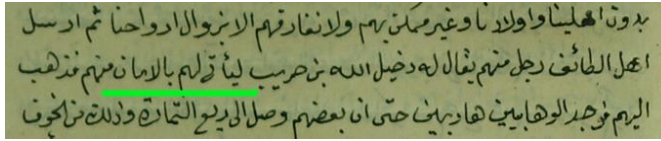 بدون اهلينا واولادنا وغير ممكن بهم ولا نفارقهم الا بزوال ارواحنا ثم ارسل
اهل الطائف رجل منهم يقال له دخيل الله بن حريب ليأتي لهم بالامان منهم فذهب
اليهم فوجد الوهابيين هاربين حتى ان بعضهم وصل الى ريع التمارة وذلك من الخوف